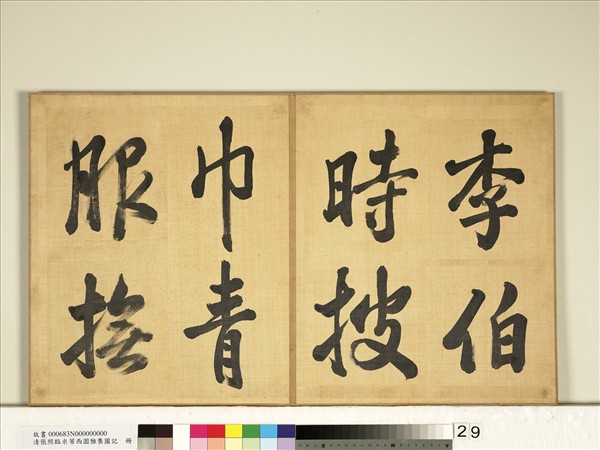 李伯
時披
巾青
服撫
故書 000683N000000000
清張照臨米芾西園雅集圖記 冊
29